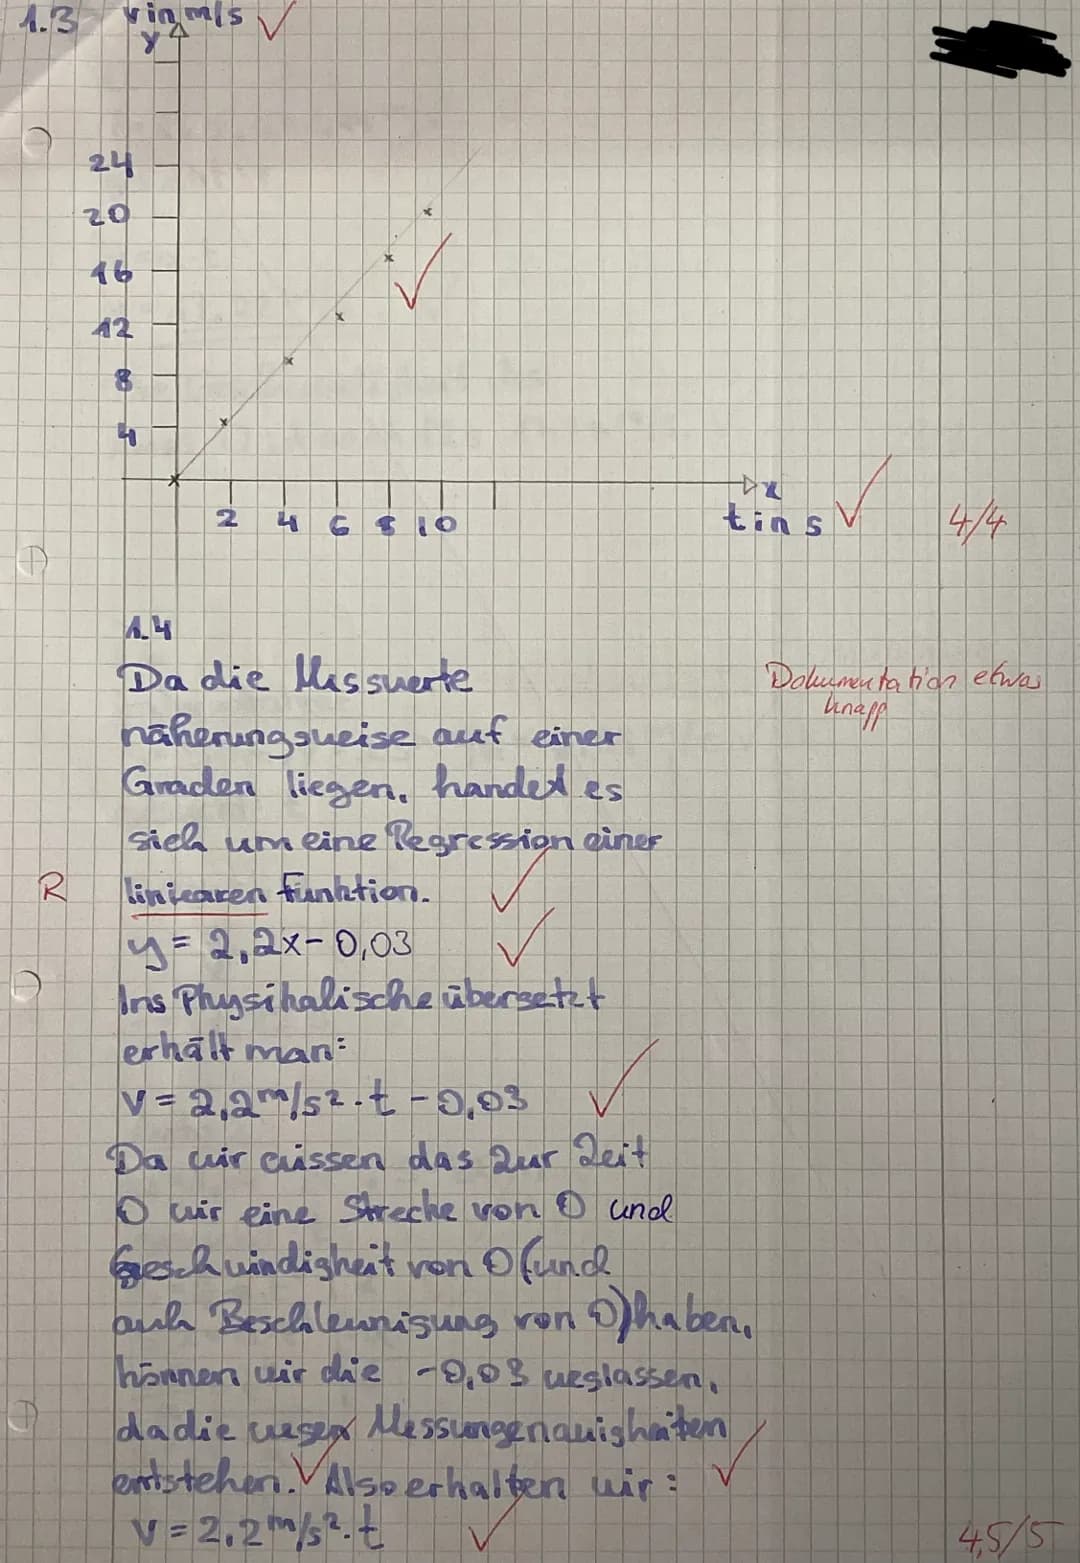 1.3 v in m/s
y
24
20
16
12
8
4
2 4 6 8 10
x
t in s
4/4
1.4
Da die Missuerte
Dokumentation etwas
knapp
näherungsweise auf einer
Graden liegen, handet es
sich um eine Regression einer
R linicaren Funktion.
y = 2,2x - 0,03
Ins Physikalische übersetzt
erhält man:
v = 2,2 m/s² · t - 0,03
Da wir wissen das zur Zeit
0 wir eine Strecke von 0 und
Geschwindigkeit von 0 (und
auch Beschleunigung von 0) haben,
können wir die -0,03 weglassen,
da die wegen Messungenauigkeiten
entstehen. Also erhalten wir:
v = 2,2 m/s² · t
4,5/5